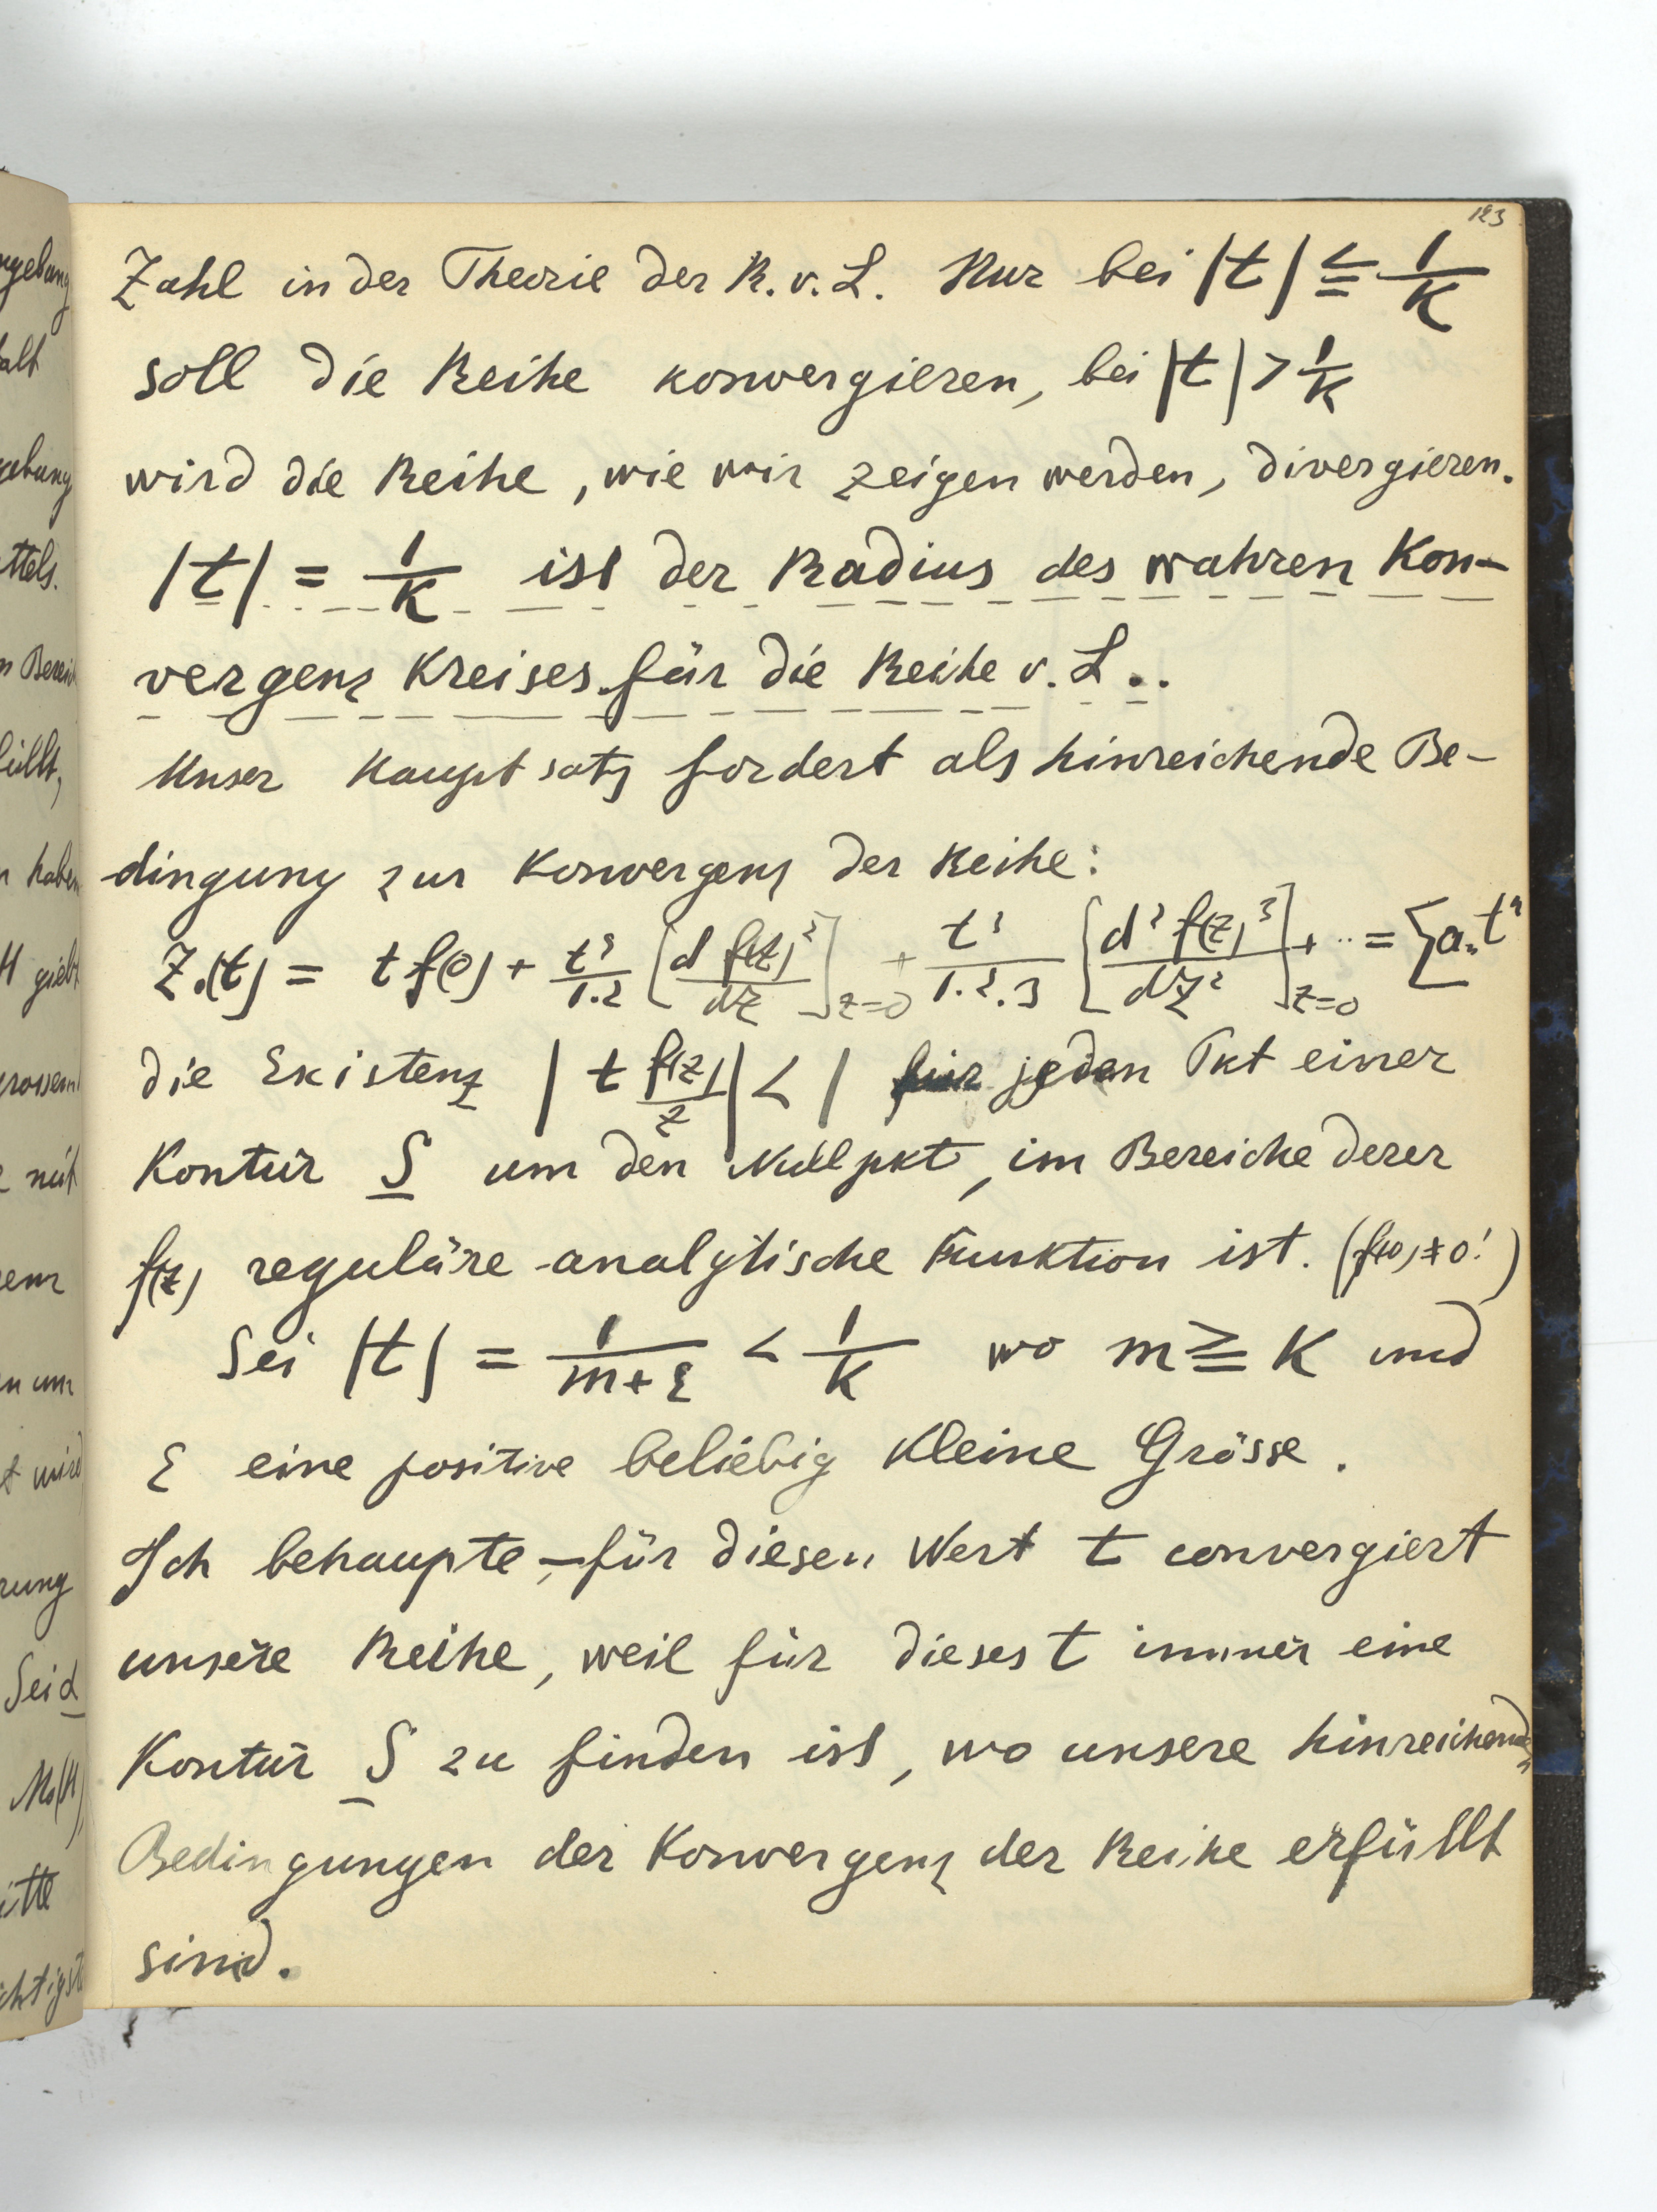 123
Zahl in der Theorie der R. v. L. Nur bei |t| ≦ 1/K
soll die Reihe konvergieren, bei |t| > 1/K
wird die Reihe, wie wir zeigen werden, divergieren.
|t| = 1/K ist der Radius des wahren Kon-
vergenz Kreises für die Reihe v. L..
Unser Hauptsatz fordert als hinreichende Be-
dingung zur Konvergenz der Reihe:
Z₀(t) = t f(0) + t²/1.2 [d f(z)²/dz]z=0 + t³/1.2.3 [d² f(z)³/dz²]z=0 + ·· = Σaₙtⁿ
die Existenz |t f(z)/z| < 1 für jeden Pkt einer
Kontur S um den Nullpkt, im Bereiche derer
f(z) reguläre analytische Funktion ist. (f(0) ≠ 0!)
Sei |t| = 1/m+ε < 1/K wo m ≧ K und
ε eine positive beliebig kleine Grösse.
Ich behaupte, – für diesen Wert t convergiert
unsere Reihe, weil für dieses t immer eine
Kontur S zu finden ist, wo unsere hinreichenden
Bedingungen der Konvergenz der Reihe erfüllt
sind.